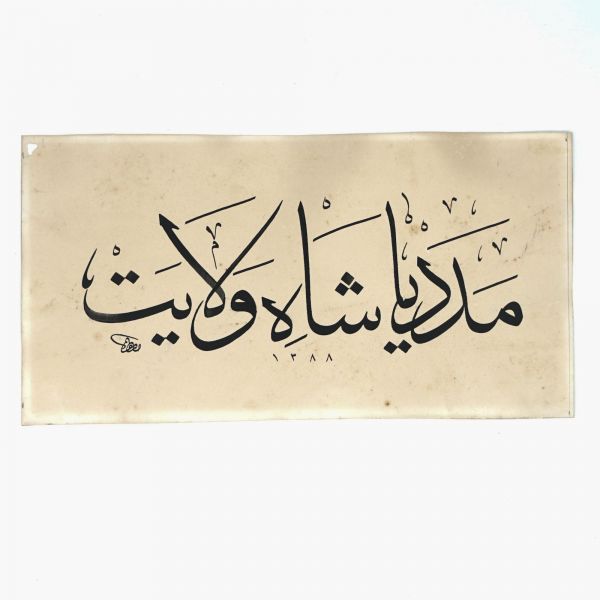 مَدَدْ يَا شَاهِ وَلَايَتْ
١٣٨٨